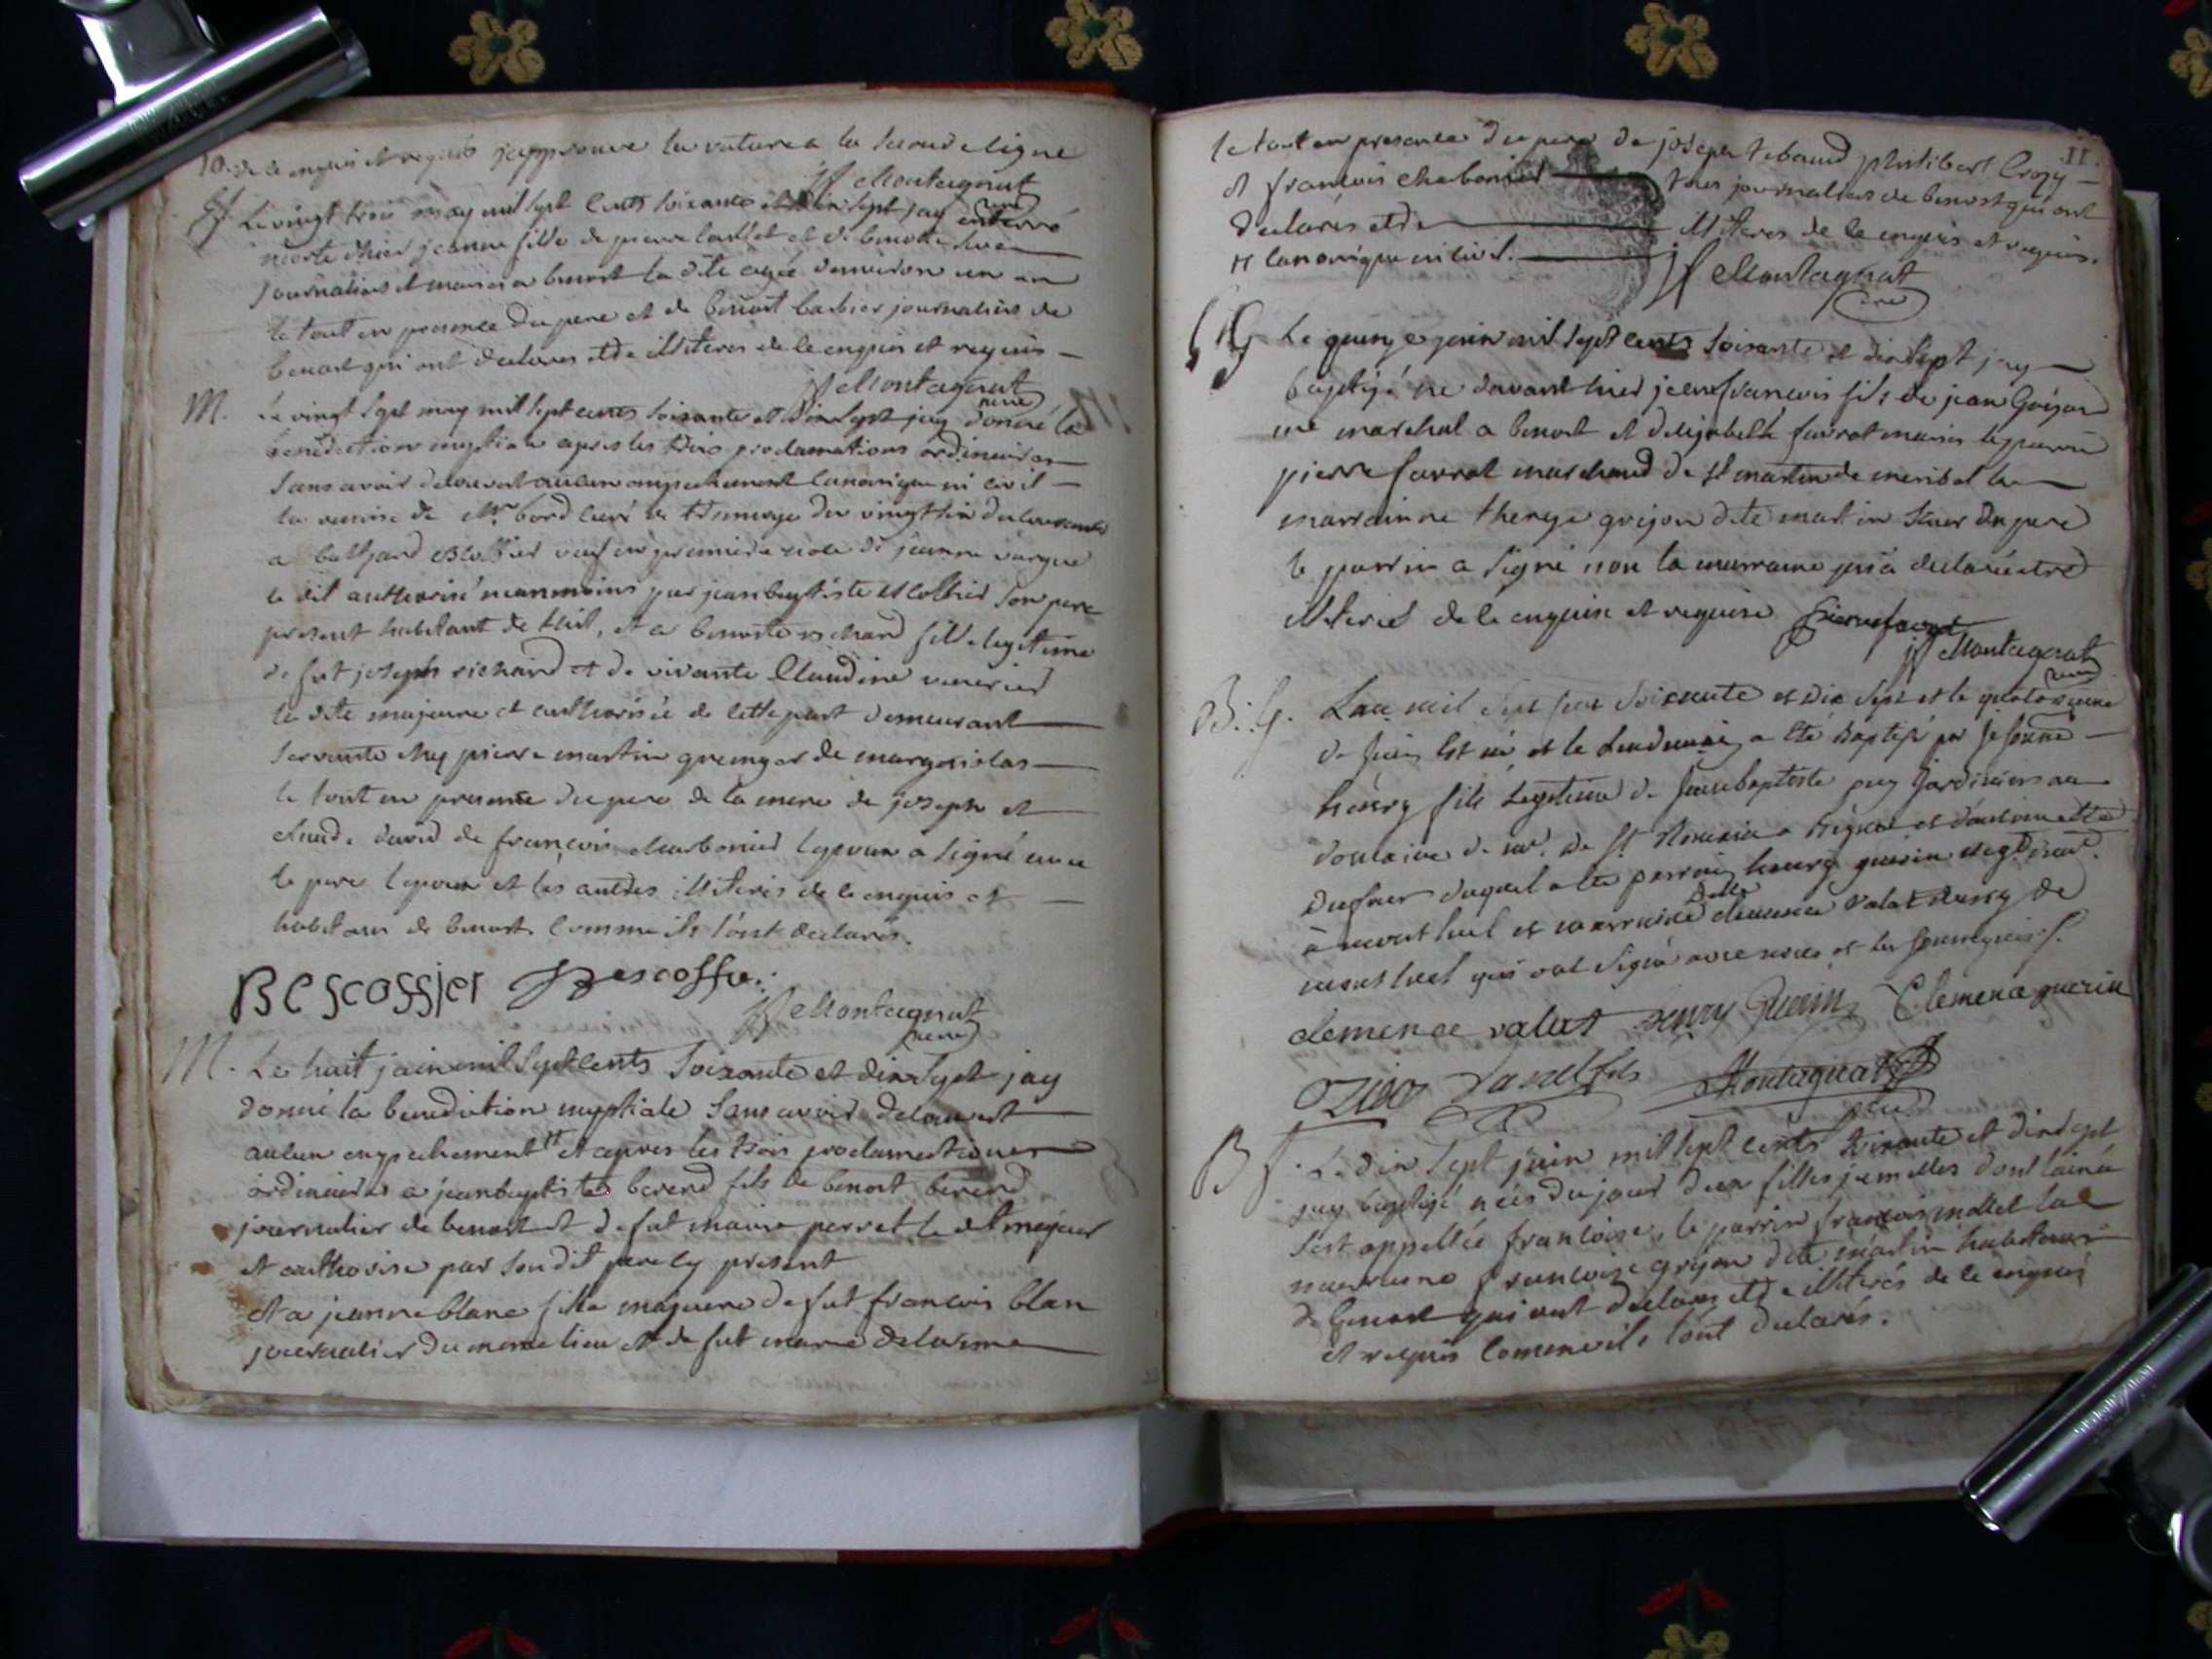 10. de le enquis et requis japprouve la rature a la seconde ligne
jf Montagnat
curé
Le vingt trois may mil sept cents soixante et dix sept jay enterré
morte d'hier jeanne fille de pierre et de benoite
journaliers et mariés a benost la dite agée d'environ un an
le tout en presence du pere et de benoit barbier journaliers de
benost qui ont declarés etre illiteres de le enquis et requis
jf Montagnat
curé
M. Le vingt sept may mil sept cents soixante et dix sept jay donné la
benediction nuptiale apres les trois proclamations ordinaires
sans avoir decouvert aucun empechement canonique ni civil
la remise de Mr bord curé de du vingt six du courant
a veuf en premiere de jeanne
le dit authorisé neanmoins par jean baptiste escoffier son pere
present habitant de thil, et a benoite richard fille legitime
de fut joseph richard et de vivante Claudine
la dite majeure et authorisée de cette part demeurant
servante chez pierre martin granger de margnolas
le tout en presence du pere de la mere de joseph et
claude david de francois charbonier lepoux a signé avec
le pere lepouse et les autres illiteres de le enquis et
habitans de benost comme ils l'ont declarés.
B Escoffier Bescoffie
jf Montagnat
curé
M. Le huit juin mil sept cents soixante et dix sept jay
donné la benediction nuptiale sans avoir decouvert
aucun empechement H et apres les trois proclamations
ordinaires a jean baptiste berend fils de benoit berend
journalier de benost et de fut marie perret le dt majeur
et authorisé par son dit pere cy present
et a jeanne blanc fille majeure de fut francois blan
journalier du meme lieu et de fut marie delorme
11.
le tout en presence du pere de joseph tebaud philibert Crozy
et francois Charbonier tous journaliers de benost qui ont
declarés etre illiteres de le enquis et requis.
H canonique ni civil.
jf Montagnat
curé
Le quinze juin mil sept cents soixante et dix sept jay
baptizé ne d'avant hier jean francois fils de jean Goijon
me marchal a benost et d'elizabeth favrot mariés le parrin
pierre favrot marchand de st martin de miribel la
marrainne therese goijon dite martin soeur du pere
le parrin a signé non la marraine qui a declaré etre
illiteré de le enquise et requise Pierre favrot
jf Montagnat
curé
B. g. L'an mil sept cent soixante et dix sept et le quatorzieme
de juin est né et le lendemain a été baptisé par je soussé
henry fils legitime de jean baptiste puy jardinier au
domaine de mr. de St Romain a et d'antoinette
Dufour duquel a été parrain henry guerin negt.
à montluel et marraine Delle clemence valat de
montluel qui ont signé avec nous et les soussignés.
clemence valat henry Guerin Clemence guerin
fils Montagnat
curé
B f. Le dix sept juin mil sept cents soixante et dix sept
jay baptizé nées du jour deux filles jumelles dont lainée
s'est appellée francoise, le parrin francois mollet la
marraine francoise goijon dite martin habitans
de benost qui ont declarés etre illiterés de le enquis
et requis comme ils l'ont declarés.